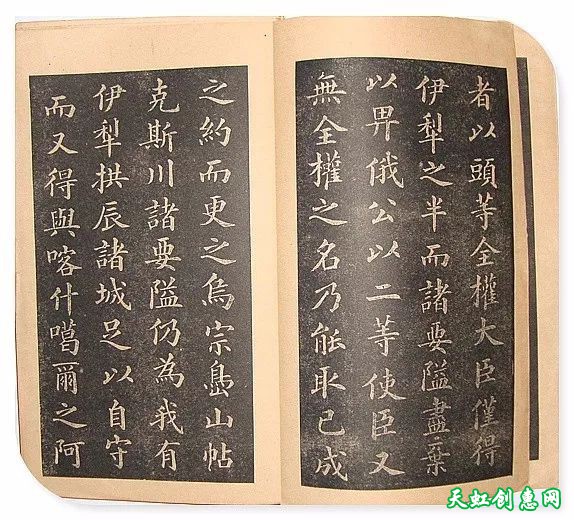 者以頭等全權大臣僅得
伊犁之半而諸要隘盡棄
以畀俄公以二等使臣又
無全權之名乃能取已成
之約而更之烏宗島山帖
克斯川諸要隘仍為我有
伊犁拱辰諸城足以自守
而又得與喀什噶爾之阿
天虹创惠网